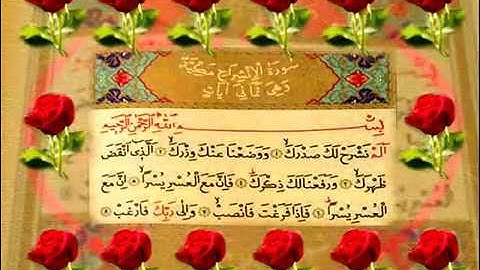 سورة الانشراح مكية
وهى ثمانى ايات
بِسْمِ اللهِ الرَّحْمٰنِ الرَّحِيمِ
اَلَمْ نَشْرَحْ لَكَ صَدْرَكَ ۙ ١ وَوَضَعْنَا عَنْكَ وِزْرَكَ ۙ ٢ اَلَّذِى اَنْقَضَ
ظَهْرَكَ ۙ ٣ وَرَفَعْنَا لَكَ ذِكْرَكَ ۜ ٤ فَاِنَّ مَعَ الْعُسْرِ يُسْرًا ۙ ٥ اِنَّ مَعَ
الْعُسْرِ يُسْرًا ۜ ٦ فَاِذَا فَرَغْتَ فَانْصَبْ ۙ ٧ وَاِلٰى رَبِّكَ فَارْغَبْ ٨